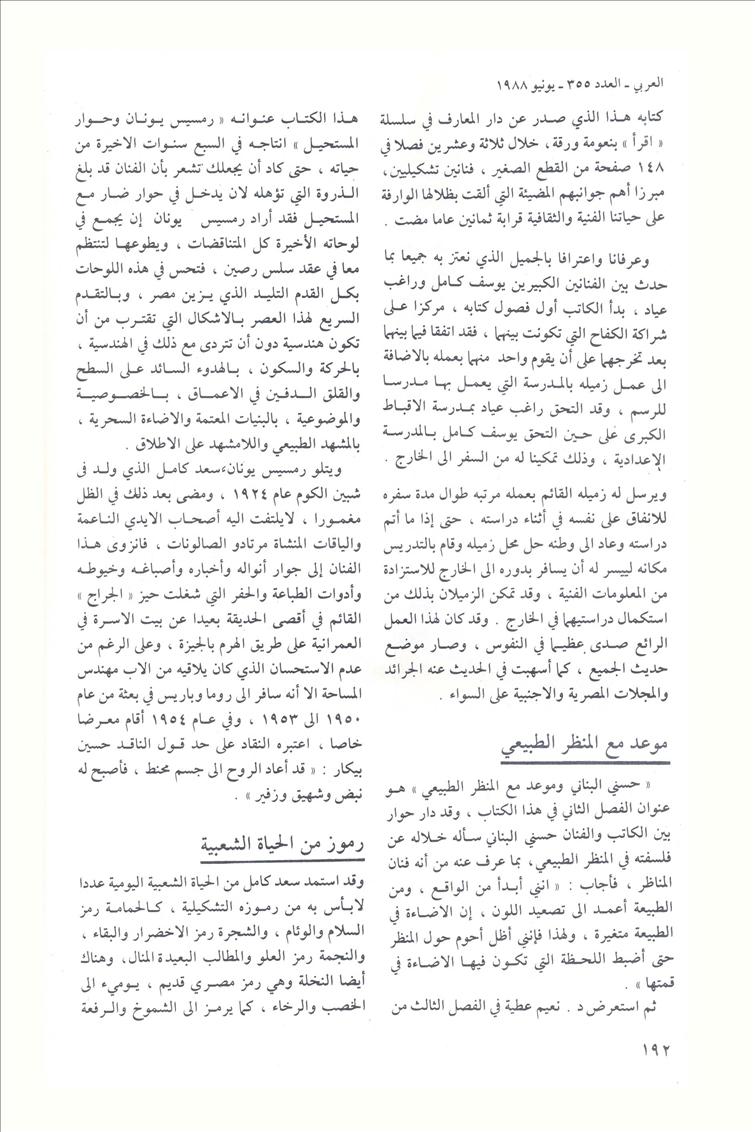 العربي ـ العدد ٣٥٥ ـ يونيو ١٩٨٨
كتابه هـذا الذي صـدر عن دار المعارف في سلسلة
« اقرأ » بنعومة ورقة ، خلال ثلاثة وعشرين فصلا في
١٤٨ صفحة من القطع الصغير ، فنانين تشكيليين ،
مبرزا أهم جوانبهم المضيئة التي ألقت بظلالها الوارفة
على حياتنا الفنية والثقافية قرابة ثمانين عاما مضت .
وعرفانا واعترافا بالجميل الذي نعتز به جميعا بما
حدث بين الفنانين الكبيرين يوسف كـامل وراغب
عياد ، بدأ الكاتب أول فصول كتابه ، مركزا عـلى
شراكة الكفاح التي تكونت بينهما ، فقد اتفقا فيما بينهما
بعد تخرجهما على أن يقوم واحد منهما بعمله بالاضافة
الى عمـل زميله بالمـدرسة التي يعمـل بهـا مـدرسـا
للرسم ، وقد التحق راغب عياد بمـدرسة الاقبـاط
الكبرى عَلى حـين التحق يوسف كـامل بـالمدرسـة
الإعدادية ، وذلك تمكينا له من السفر الى الخارج .
ويرسل له زميله القائم بعمله مرتبه طوال مدة سفره
للانفاق على نفسه في أثناء دراسته ، حتى إذا ما أتم
دراسته وعاد الى وطنه حل محل زميله وقام بالتدريس
مكانه ليسر له أن يسافر بدوره الى الخارج للاستزادة
من المعلومات الفنية ، وقد تمكن الزميلان بذلك من
استكمال دراستيهما في الخارج . وقد كان لهذا العمل
الرائع صدى عظيـما في النفوس ، وصـار موضـع
حديث الجميع ، كما أسهبت في الحديث عنه الجرائد
والمجلات المصرية والاجنبية على السواء .
موعد مع المنظر الطبيعي
« حسني البناني وموعد مع المنظر الطبيعي » هـو
عنوان الفصل الثاني في هذا الكتاب ، وقد دار حوار
بين الكاتب والفنان حسني البناني سـأله خلاله عن
فلسفته في المنظر الطبيعي، بما عرف عنه من أنه فنان
المناظر ، فأجاب : « انني أبـدأ من الواقـع ، ومن
الطبيعة أعمـد الى تصعيد اللون ، إن الاضاءة في
الطبيعة متغيرة ، ولهذا فإنني أظل أحوم حول المنظر
حتى أضبط اللحظة التي تكـون فيهـا الاضاءة في
قمتها » .
ثم استعرض د . نعيم عطية في الفصل الثالث من
هـذا الكتـاب عنوانـه « رمسيس يـونـان وحـوار
المستحيـل » انتاجـه في السبع سنـوات الاخيرة من
حياته ، حتى كاد أن يجعلك تشعر بأن الفنان قد بلغ
الـذروة التي تؤهله لان يدخـل في حوار ضـار مـع
المستحيـل فقد أراد رمسيس يونان إن يجمـع في
لوحاته الأخيرة كل المتناقضات ، ويطوعهـا لتنتظم
معا في عقد سلس رصين ، فتحس في هذه اللوحات
بكـل القدم التليـد الذي يـزين مصر ، وبـالتقـدم
السريع لهذا العصر بـالاشكال التي تقتـرب من أن
تكون هندسية دون أن تتردى مع ذلك في الهندسية ،
بـالحركة والسكون ، بـالهدوء السـائد عـلى السطح
والقلق الـدفـين في الاعمـاق ، بـالخصـوصيـة
والموضوعية ، بالبنيات المعتمة والاضاءة السحرية ،
بالمشهد الطبيعي واللامشهد على الاطلاق .
ويتلو رمسيس يونان سعد كامـل الذي ولد فى
شبين الكوم عام ١٩٢٤ ، ومضى بعد ذلك في الظل
مغمورا ، لايلتفت اليه أصحـاب الايدي النـاعمة
والياقات المنشاة مرتادو الصالونات ، فانزوى هـذا
الفنان إلى جوار أنواله وأخباره وأصباغـه وخيوطـه
وأدوات الطباعة والحفر التي شغلت حيز « الجراج »
القائم في أقصى الحديقة بعيدا عن بيت الاسرة في
العمرانية على طريق الهرم بالجيزة ، وعلى الرغم من
عدم الاستحسان الذي كان يلاقيه من الاب مهندس
المساحة الا أنه سافر الى روما وباريس في بعثة من عام
١٩٥٠ الى ١٩٥٣ ، وفي عـام ١٩٥٤ أقام معـرضا
خاصا ، اعتبره النقاد على حد قـول الناقـد حسين
بيكار : « قد أعاد الروح الى جسم محنط ، فأصبح له
نبض وشهيق وزفير » .
رموز من الحياة الشعبية
وقد استمد سعد كامل من الحياة الشعبية اليومية عددا
لابـأس به من رموزه التشكيلية ، كـالحمامـة رمز
السلام والوئام ، والشجرة رمز الاخضرار والبقاء ،
والنجمة رمز العلو والمطالب البعيدة المنال، وهناك
أيضا النخلة وهي رمز مصـري قديم ، يـوميء الى
الخصب والرخاء ، كما يرمـز الى الشموخ والـرفعة
١٩٢